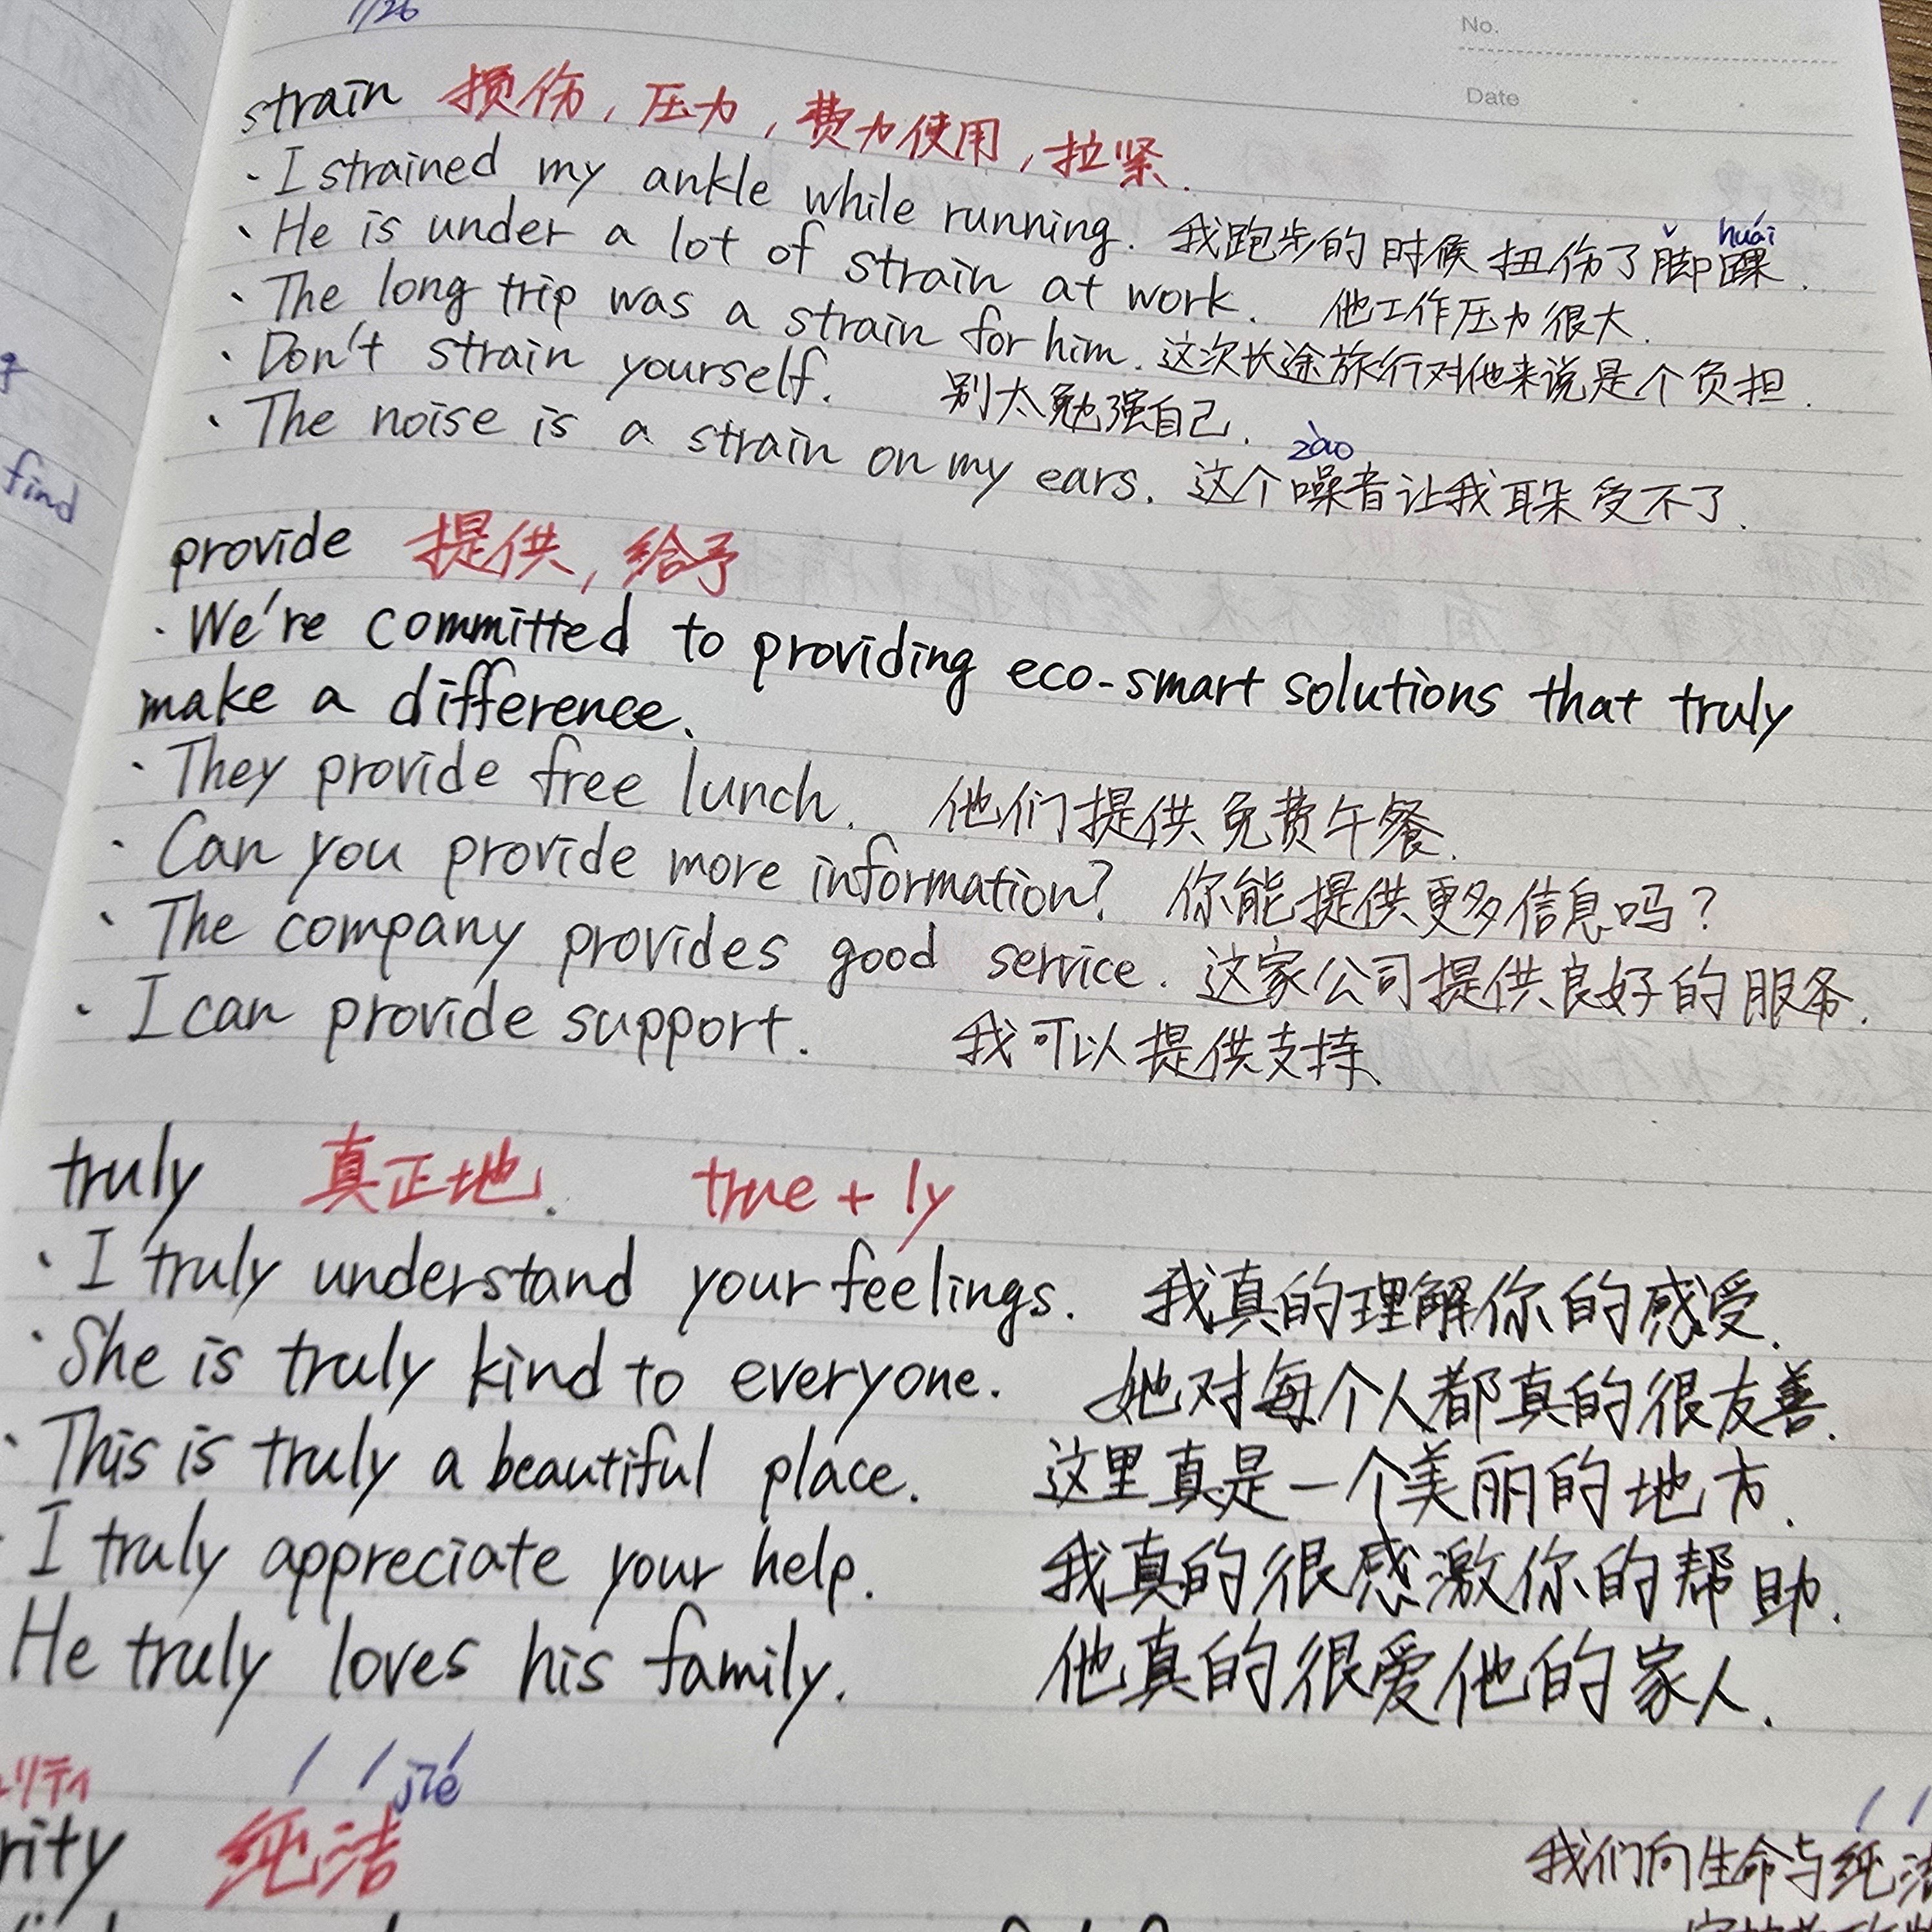 1/26
No.
Date
strain 损伤, 压力, 费力使用, 拉紧.
· I strained my ankle while running. 我跑步的时候扭伤了脚踝.
ˇ huái
· He is under a lot of strain at work. 他工作压力很大.
· The long trip was a strain for him. 这次长途旅行对他来说是个负担.
· Don't strain yourself. 别太勉强自己.
zào
· The noise is a strain on my ears. 这个噪音让我耳朵受不了.
find
provide 提供, 给予
· We're committed to providing eco-smart solutions that truly
make a difference.
· They provide free lunch. 他们提供免费午餐.
· Can you provide more information? 你能提供更多信息吗?
· The company provides good service. 这家公司提供良好的服务.
· I can provide support. 我可以提供支持.
truly 真正地. true + ly
· I truly understand your feelings. 我真的理解你的感受.
· She is truly kind to everyone. 她对每个人都真的很友善.
· This is truly a beautiful place. 这里真是一个美丽的地方.
· I truly appreciate your help. 我真的很感激你的帮助.
He truly loves his family. 他真的很爱他的家人.
リティ jié
rity 纯洁
我们向生命与纯洁